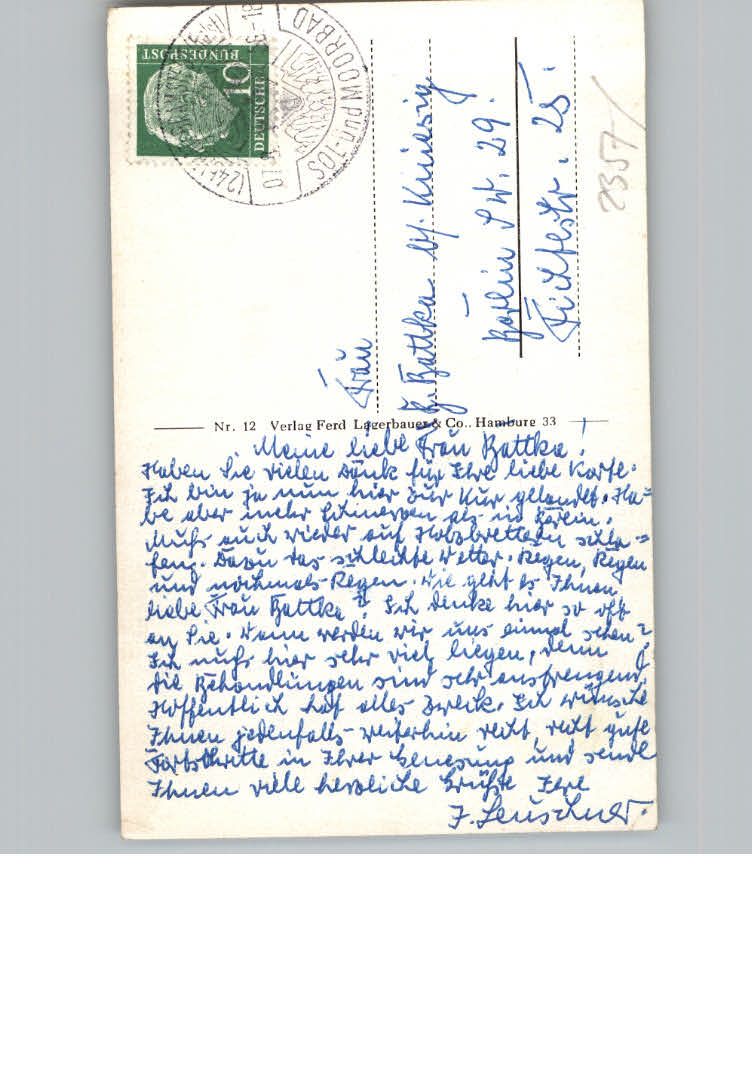 DEUTSCHE
BUNDESPOST
10
SOL- und MOORBAD
Frau
Battka
Berlin SW. 29.
Fichtestr. 25.
2357/
Nr. 12 Verlag Ferd Lagerbauer & Co., Hamburg 33
Meine liebe Frau Battka!
Haben Sie vielen Dank für Ihre liebe Karte.
Ich bin ja nun hier zur Kur gelandet. Ha-
be aber mehr Schmerzen als in Berlin.
Muß auch wieder auf Holzbrettern schla-
fen. Dazu das schlechte Wetter. Regen, Regen
und nochmals Regen. Wie geht es Ihnen
liebe Frau Battka? Ich denke hier so oft
an Sie. Wann werden wir uns einmal sehen?
Ich muß hier sehr viel liegen, denn
die Behandlungen sind sehr anstrengend.
Hoffentlich hat alles Zweck. Ich wünsche
Ihnen jedenfalls weiterhin recht, recht gute
Fortschritte in Ihrer Genesung und sende
Ihnen viele herzliche Grüße Ihre
J. Leuschner.